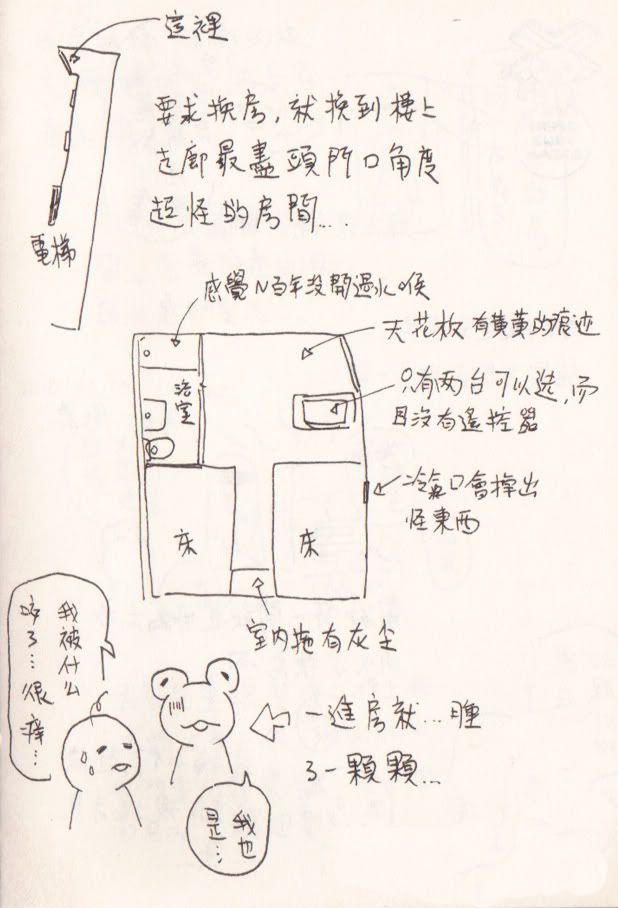 這裡
要求換房，就換到樓上
走廊最盡頭門口角度
超怪的房間...
電梯
感覺N百年沒開過水喉
天花板有黃黃的痕迹
只有两台可以选，而
且沒有遙控器
浴室
冷氣口會掉出
怪東西
床
床
室内拖有灰尘
我被什么
咬了...很痒...
一進房就...腫
了一顆顆...
我也
是...